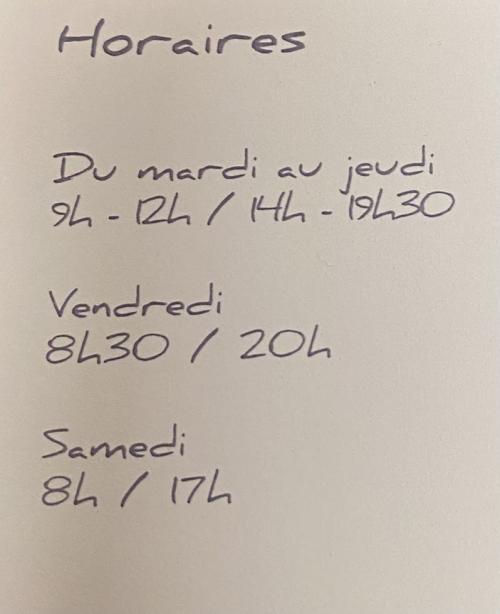 Horaires
Du mardi au jeudi
9h - 12h / 14h - 19h30
Vendredi
8h30 / 20h
Samedi
8h / 17h